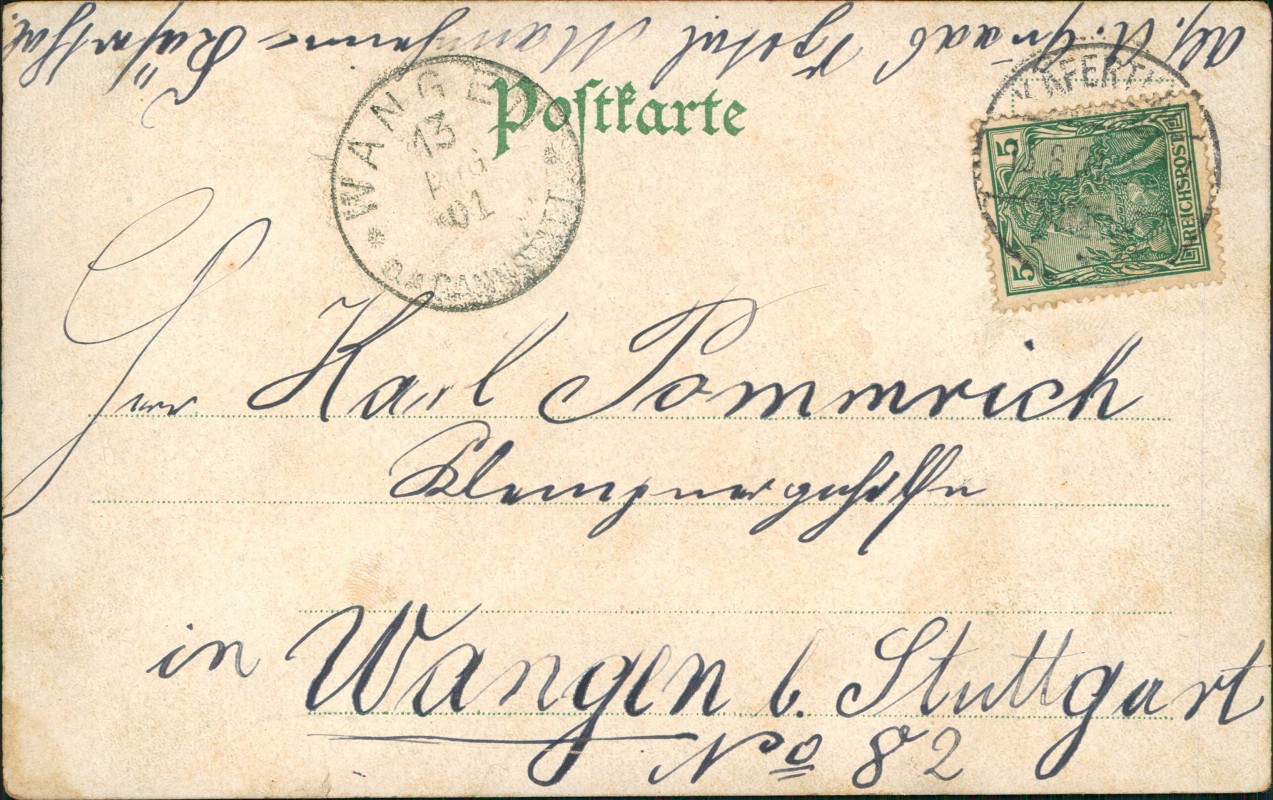 Abs. A. Graab Mannheim-Käferthal
Postkarte
WANGEN
13
AUG
01
O.A. CANNSTATT
KÄFERT
5 5
REICHSPOST
Herr Karl Pommrich
Klempnergehilfe
in Wangen b. Stuttgart
No 82